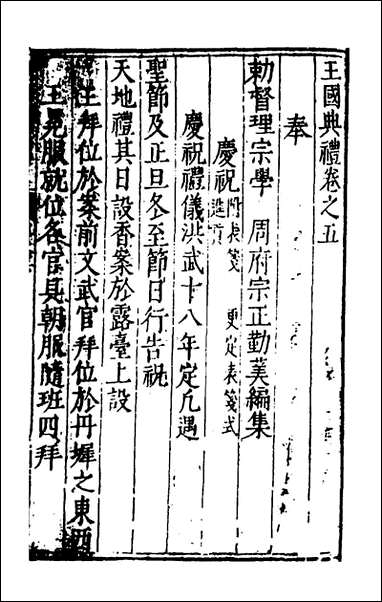 王國典禮卷之五
奉
勑督理宗學 周府宗正勤羙編集
慶祝 附表箋 進賀 更定表箋式
慶祝禮儀洪武十八年定凡遇
聖節及正旦冬至節日行告祝
天地禮其日設香案於露臺上設
王拜位於案前文武官拜位於丹墀之東西
王冕服就位各官具朝服隨班四拜